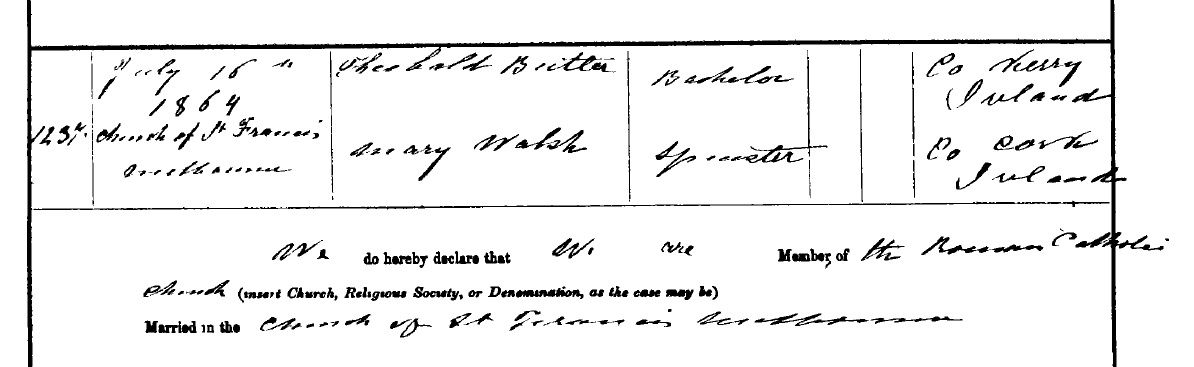 July 16th Theobald Butler Bachelor Co Kerry
1864 Ireland
1237. Church of St Francis Mary Walsh Spinster Co Cork
Melbourne Ireland
We do hereby declare that We are Members of the Roman Catholic
Church (insert Church, Religious Society, or Denomination, as the case may be)
Married in the Church of St Francis Melbourne